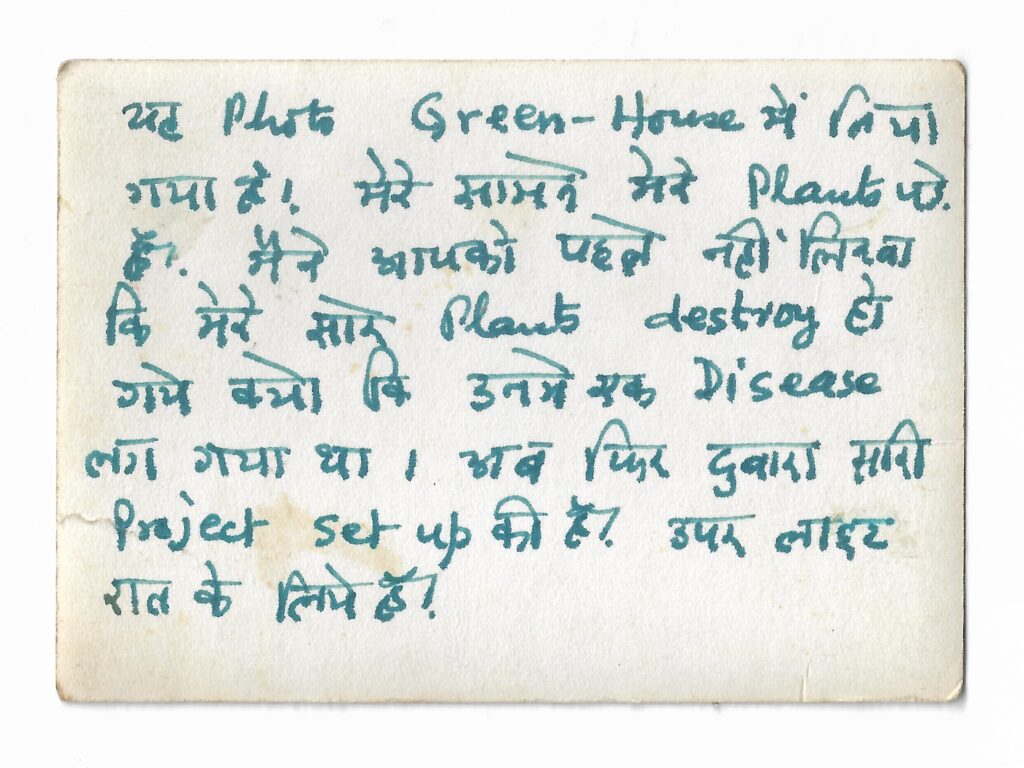 यह Photo Green-House में लिया
गया है। मेरे सामने मेरे Plants पड़े
हैं। मैंने आपको पहले नहीं लिखा
कि मेरे सारे Plants destroy हो
गये क्यो कि उनमे एक Disease
लग गया था । अब फिर दुबारा सारी
Project set up की है। उपर लाइट
रात के लिये हैं।